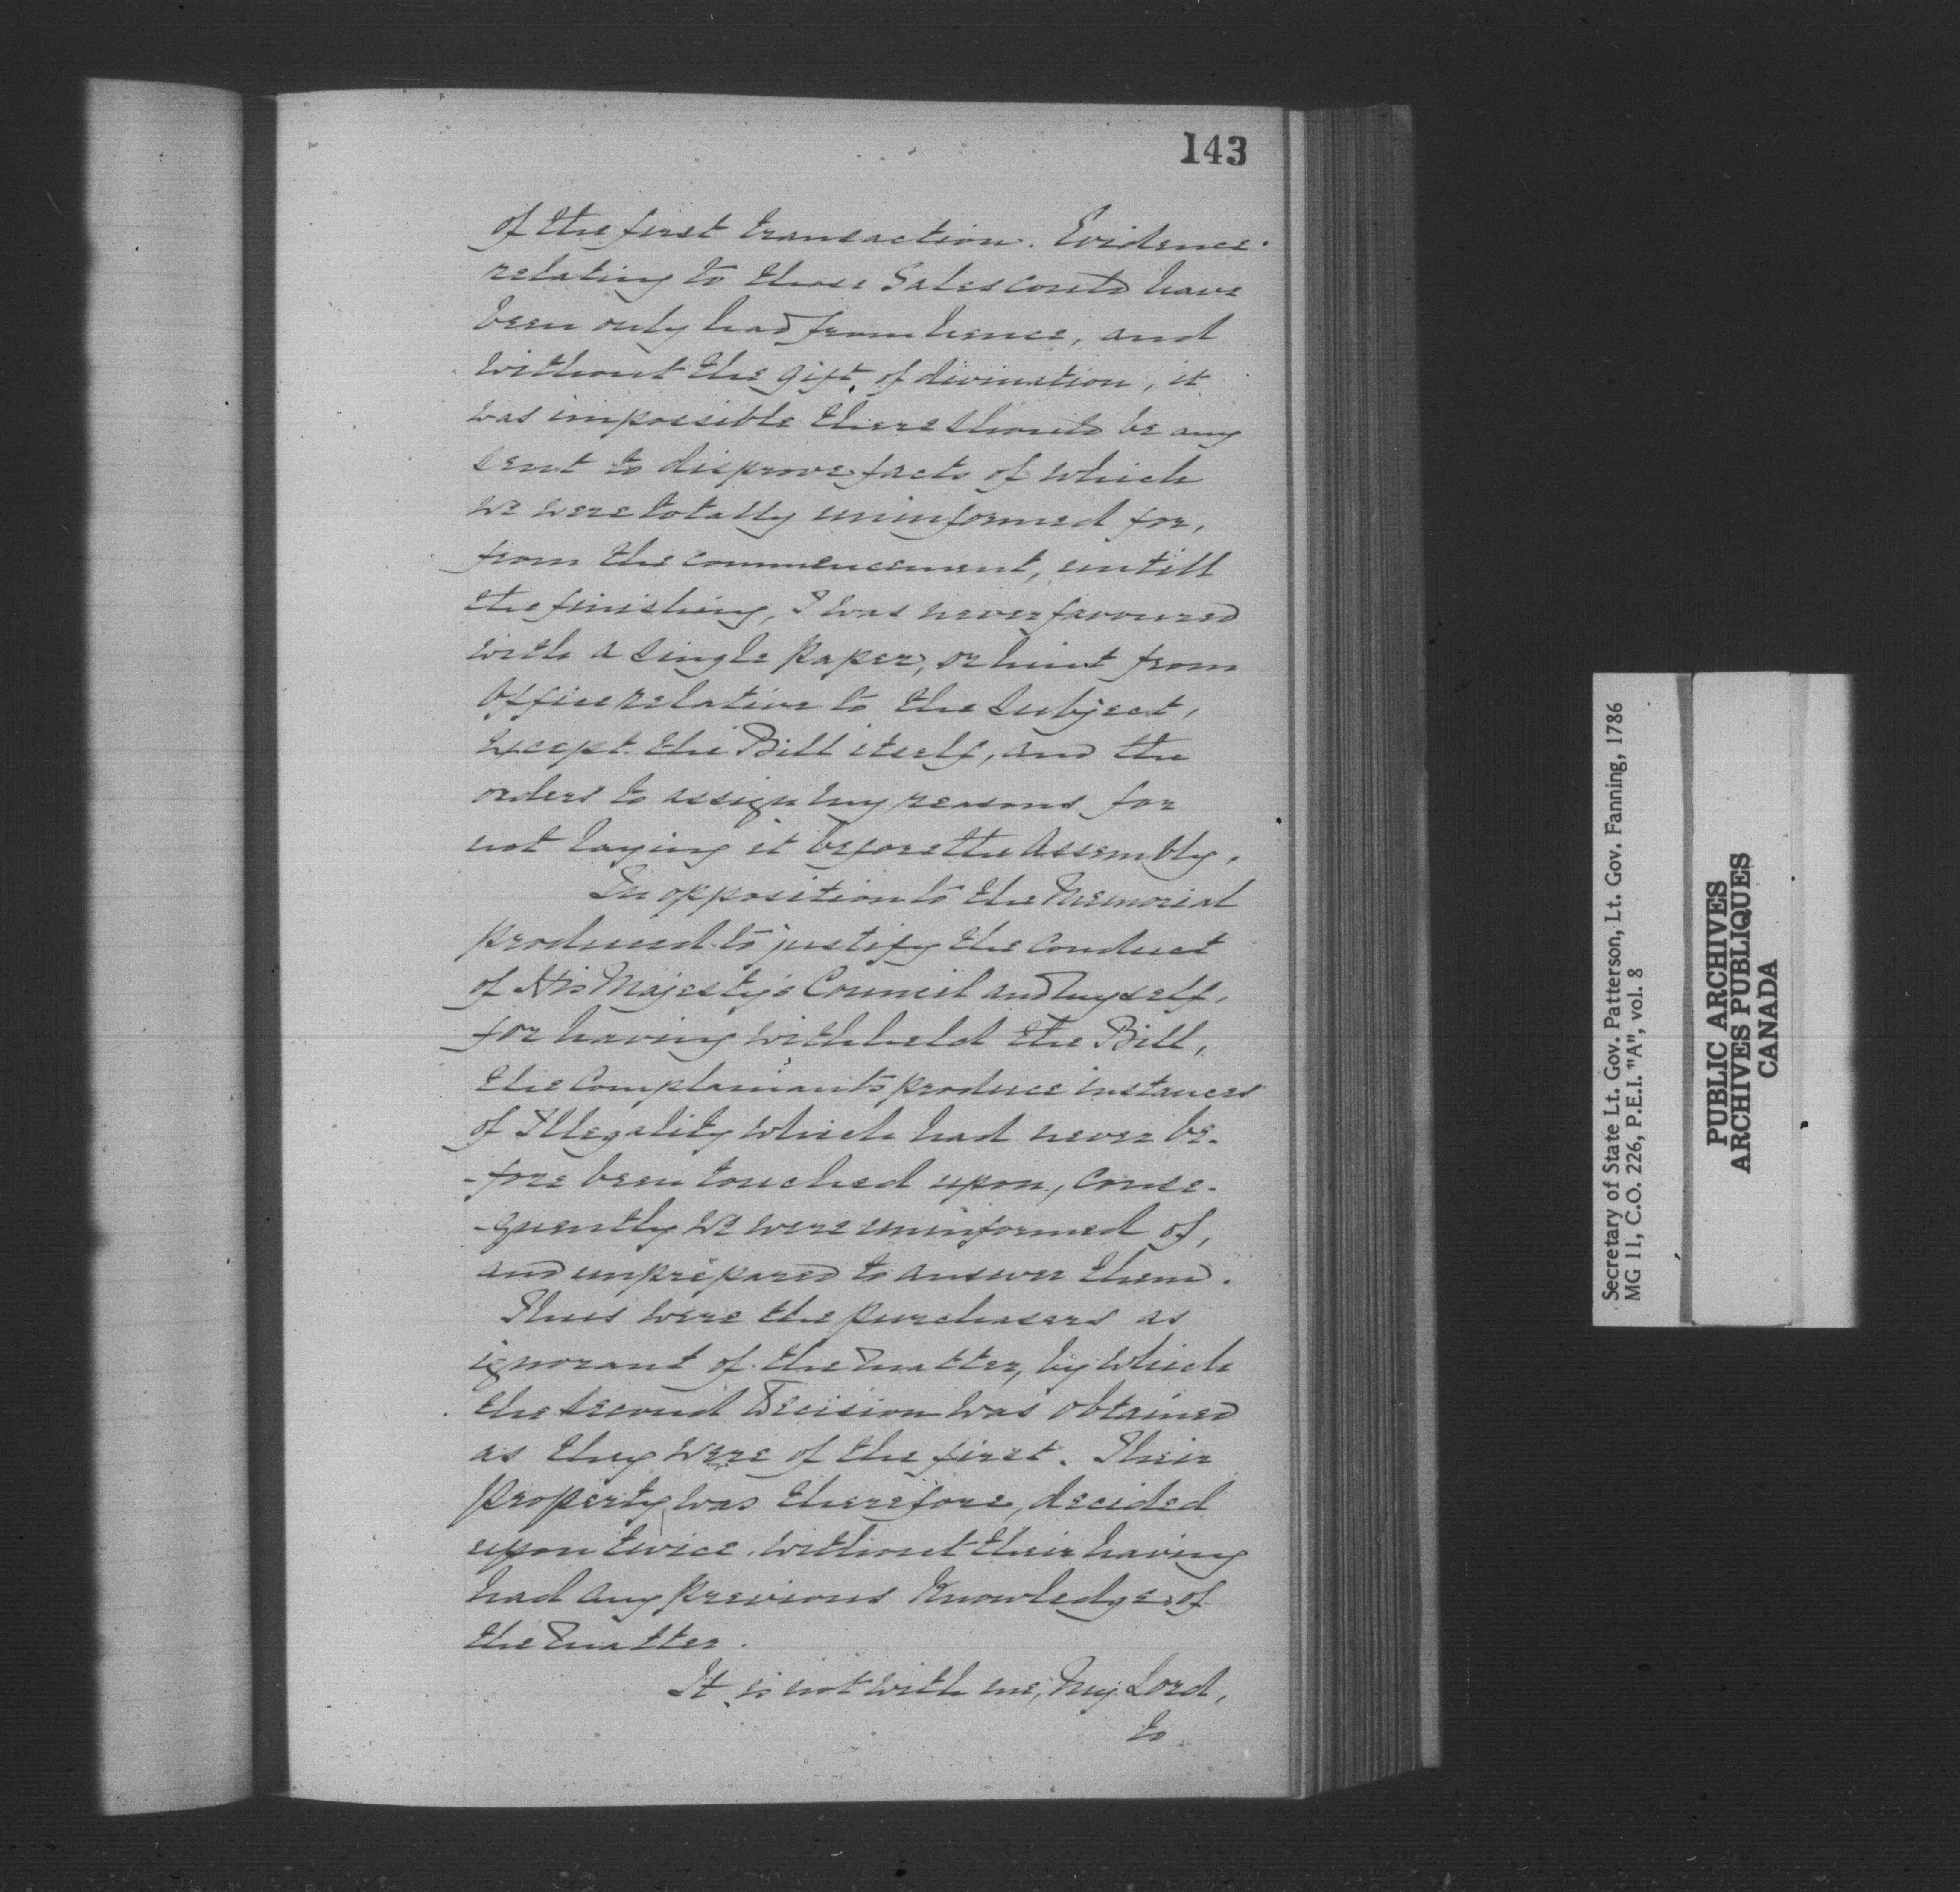 143
of the first transaction. Evidence
relating to those Sales could have
been only had from hence, and
without the gift of divination, it
was impossible there should be any
sent to disprove facts of which
we were totally uninformed for,
from the commencement, untill
the finishing, I was never favoured
with a single paper, or hint from
Office relative to the subject,
except the Bill itself, and the
orders to assign my reasons for
not laying it before the Assembly.
In opposition to the Memorial
produced to justify the conduct
of His Majesty's Council and myself,
for having withheld the Bill,
the Complainants produce instances
of Illegality which had never be-
-fore been touched upon, conse-
-quently we were uninformed of,
and unprepared to answer them.
Thus were the purchasers as
ignorant of the matter, by which
the second Decision was obtained
as they were of the first. Their
property was therefore, decided
upon twice without their having
had any previous Knowledge of
the matter.
It is not with me, My Lord,
to
Secretary of State Lt. Gov. Patterson, Lt. Gov. Fanning, 1786
MG 11, C.O. 226, P.E.I. "A", vol. 8
PUBLIC ARCHIVES
ARCHIVES PUBLIQUES
CANADA